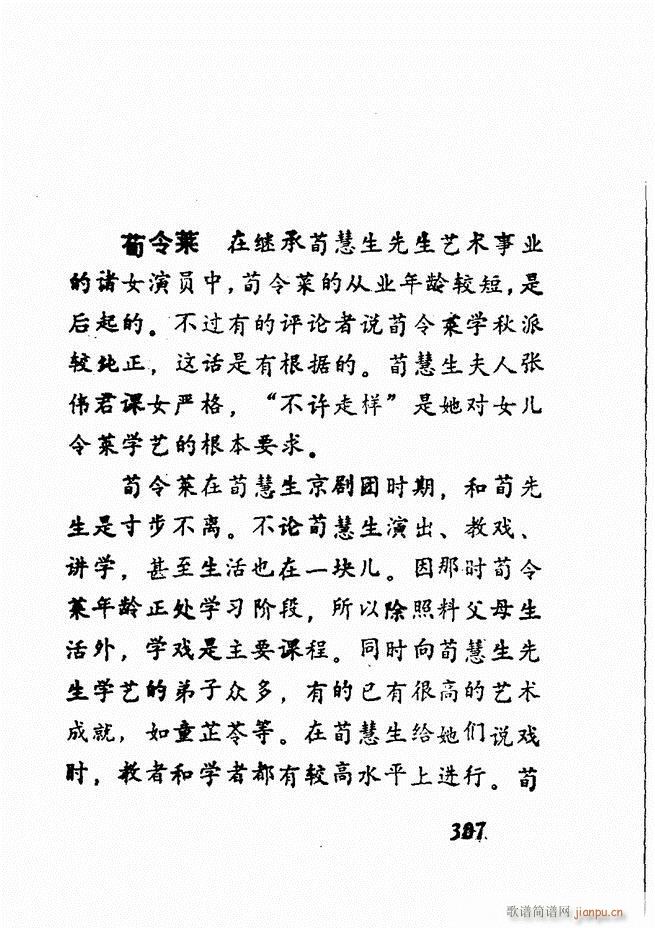 荀令莱　在继承荀慧生先生艺术事业
的诸女演员中，荀令莱的从业年龄较短，是
后起的。不过有的评论者说荀令莱学秋派
较纯正，这话是有根据的。荀慧生夫人张
伟君课女严格，“不许走样”是她对女儿
令莱学艺的根本要求。
荀令莱在荀慧生京剧团时期，和荀先
生是寸步不离。不论荀慧生演出、教戏、
讲学，甚至生活也在一块儿。因那时荀令
莱年龄正处学习阶段，所以除照料父母生
活外，学戏是主要课程。同时向荀慧生先
生学艺的弟子众多，有的已有很高的艺术
成就，如童芷苓等。在荀慧生给她们说戏
时，教者和学者都有较高水平上进行。荀
387
歌谱简谱网 jianpu.cn